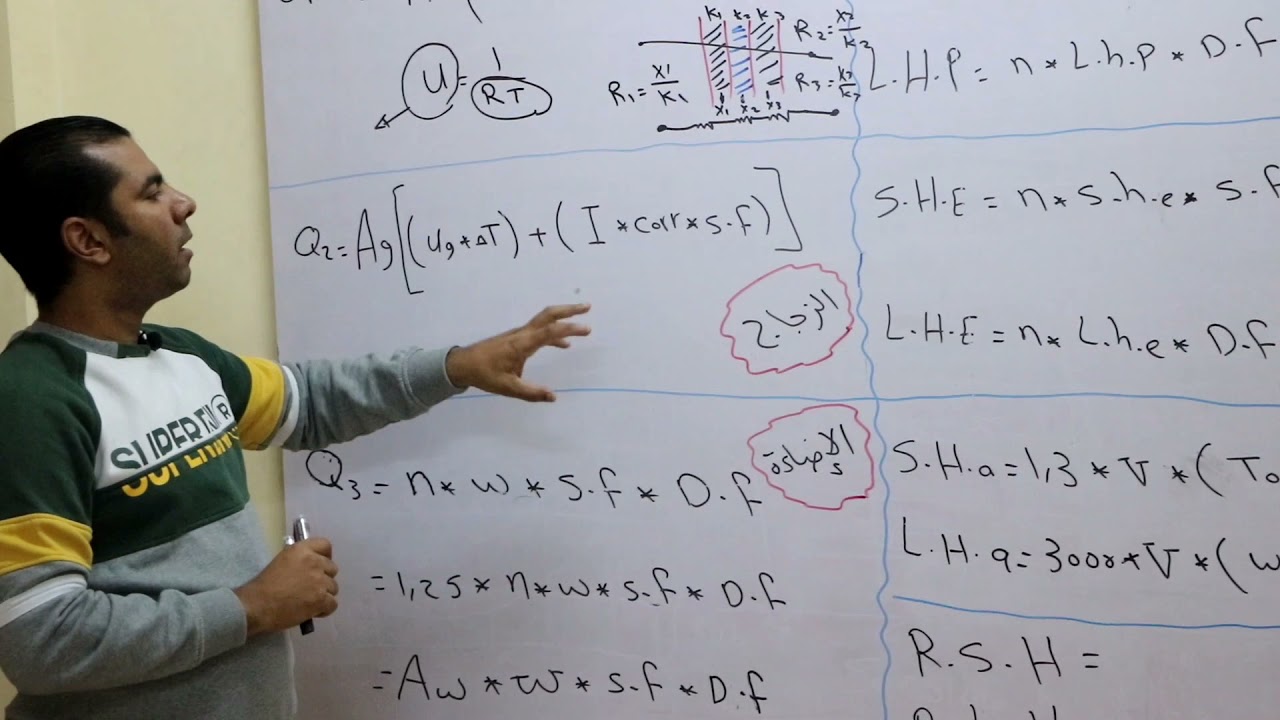 U = 1/RT
K1 K2 K3
R2 = x2/K2
R1 = x1/K1
R3 = x3/K3
x1 x2 x3
Q2 = Ag[(Ug*ΔT) + (I*Corr*S.f)]
الزجاج
Q3 = n*w*S.f*D.f
الاضاءة
= 1,25*n*w*S.f*D.f
= Aw*w*S.f*D.f
L.H.P = n*L.h.p*D.f
S.H.E = n*s.h.e*S.f
L.H.E = n*L.h.e*D.f
S.H.a = 1,3*V*(To
L.H.a = 3000*V*(w
R.S.H =
SUPERT
R
SUPER